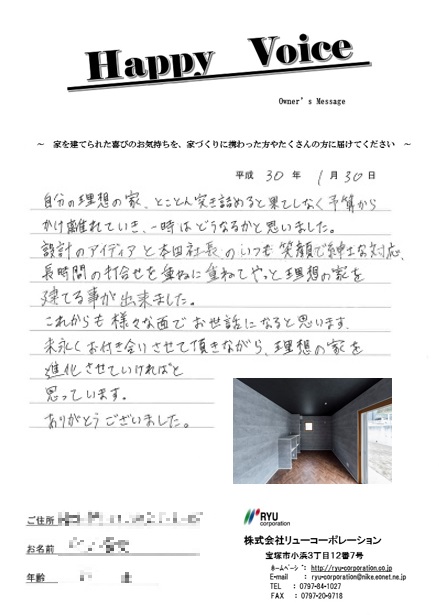 Happy Voice
Owner's Message
～ 家を建てられた喜びのお気持ちを、家づくりに携わった方やたくさんの方に届けてください ～
平成 30 年 1 月 30 日
自分の理想の家、とことん突き詰めると果てしなく予算から
かけ離れていき、一時はどうなるかと思いました。
設計のアイディアと本田社長のいつも笑顔で紳士な対応、
長時間の打合せを重ねに重ねてやっと理想の家を
建てる事が出来ました。
これからも様々な面でお世話になると思います。
末永くお付き合いさせて頂きながら、理想の家を
進化させていければと
思っています。
ありがとうございました。
ご住所
お名前
年齢
RYU
corporation
株式会社リューコーポレーション
宝塚市小浜3丁目12番7号
ホームページ: http://ryu-corporation.co.jp
E-mail : ryu-corporation@nike.eonet.ne.jp
TEL : 0797-84-1027
FAX : 0797-20-9718